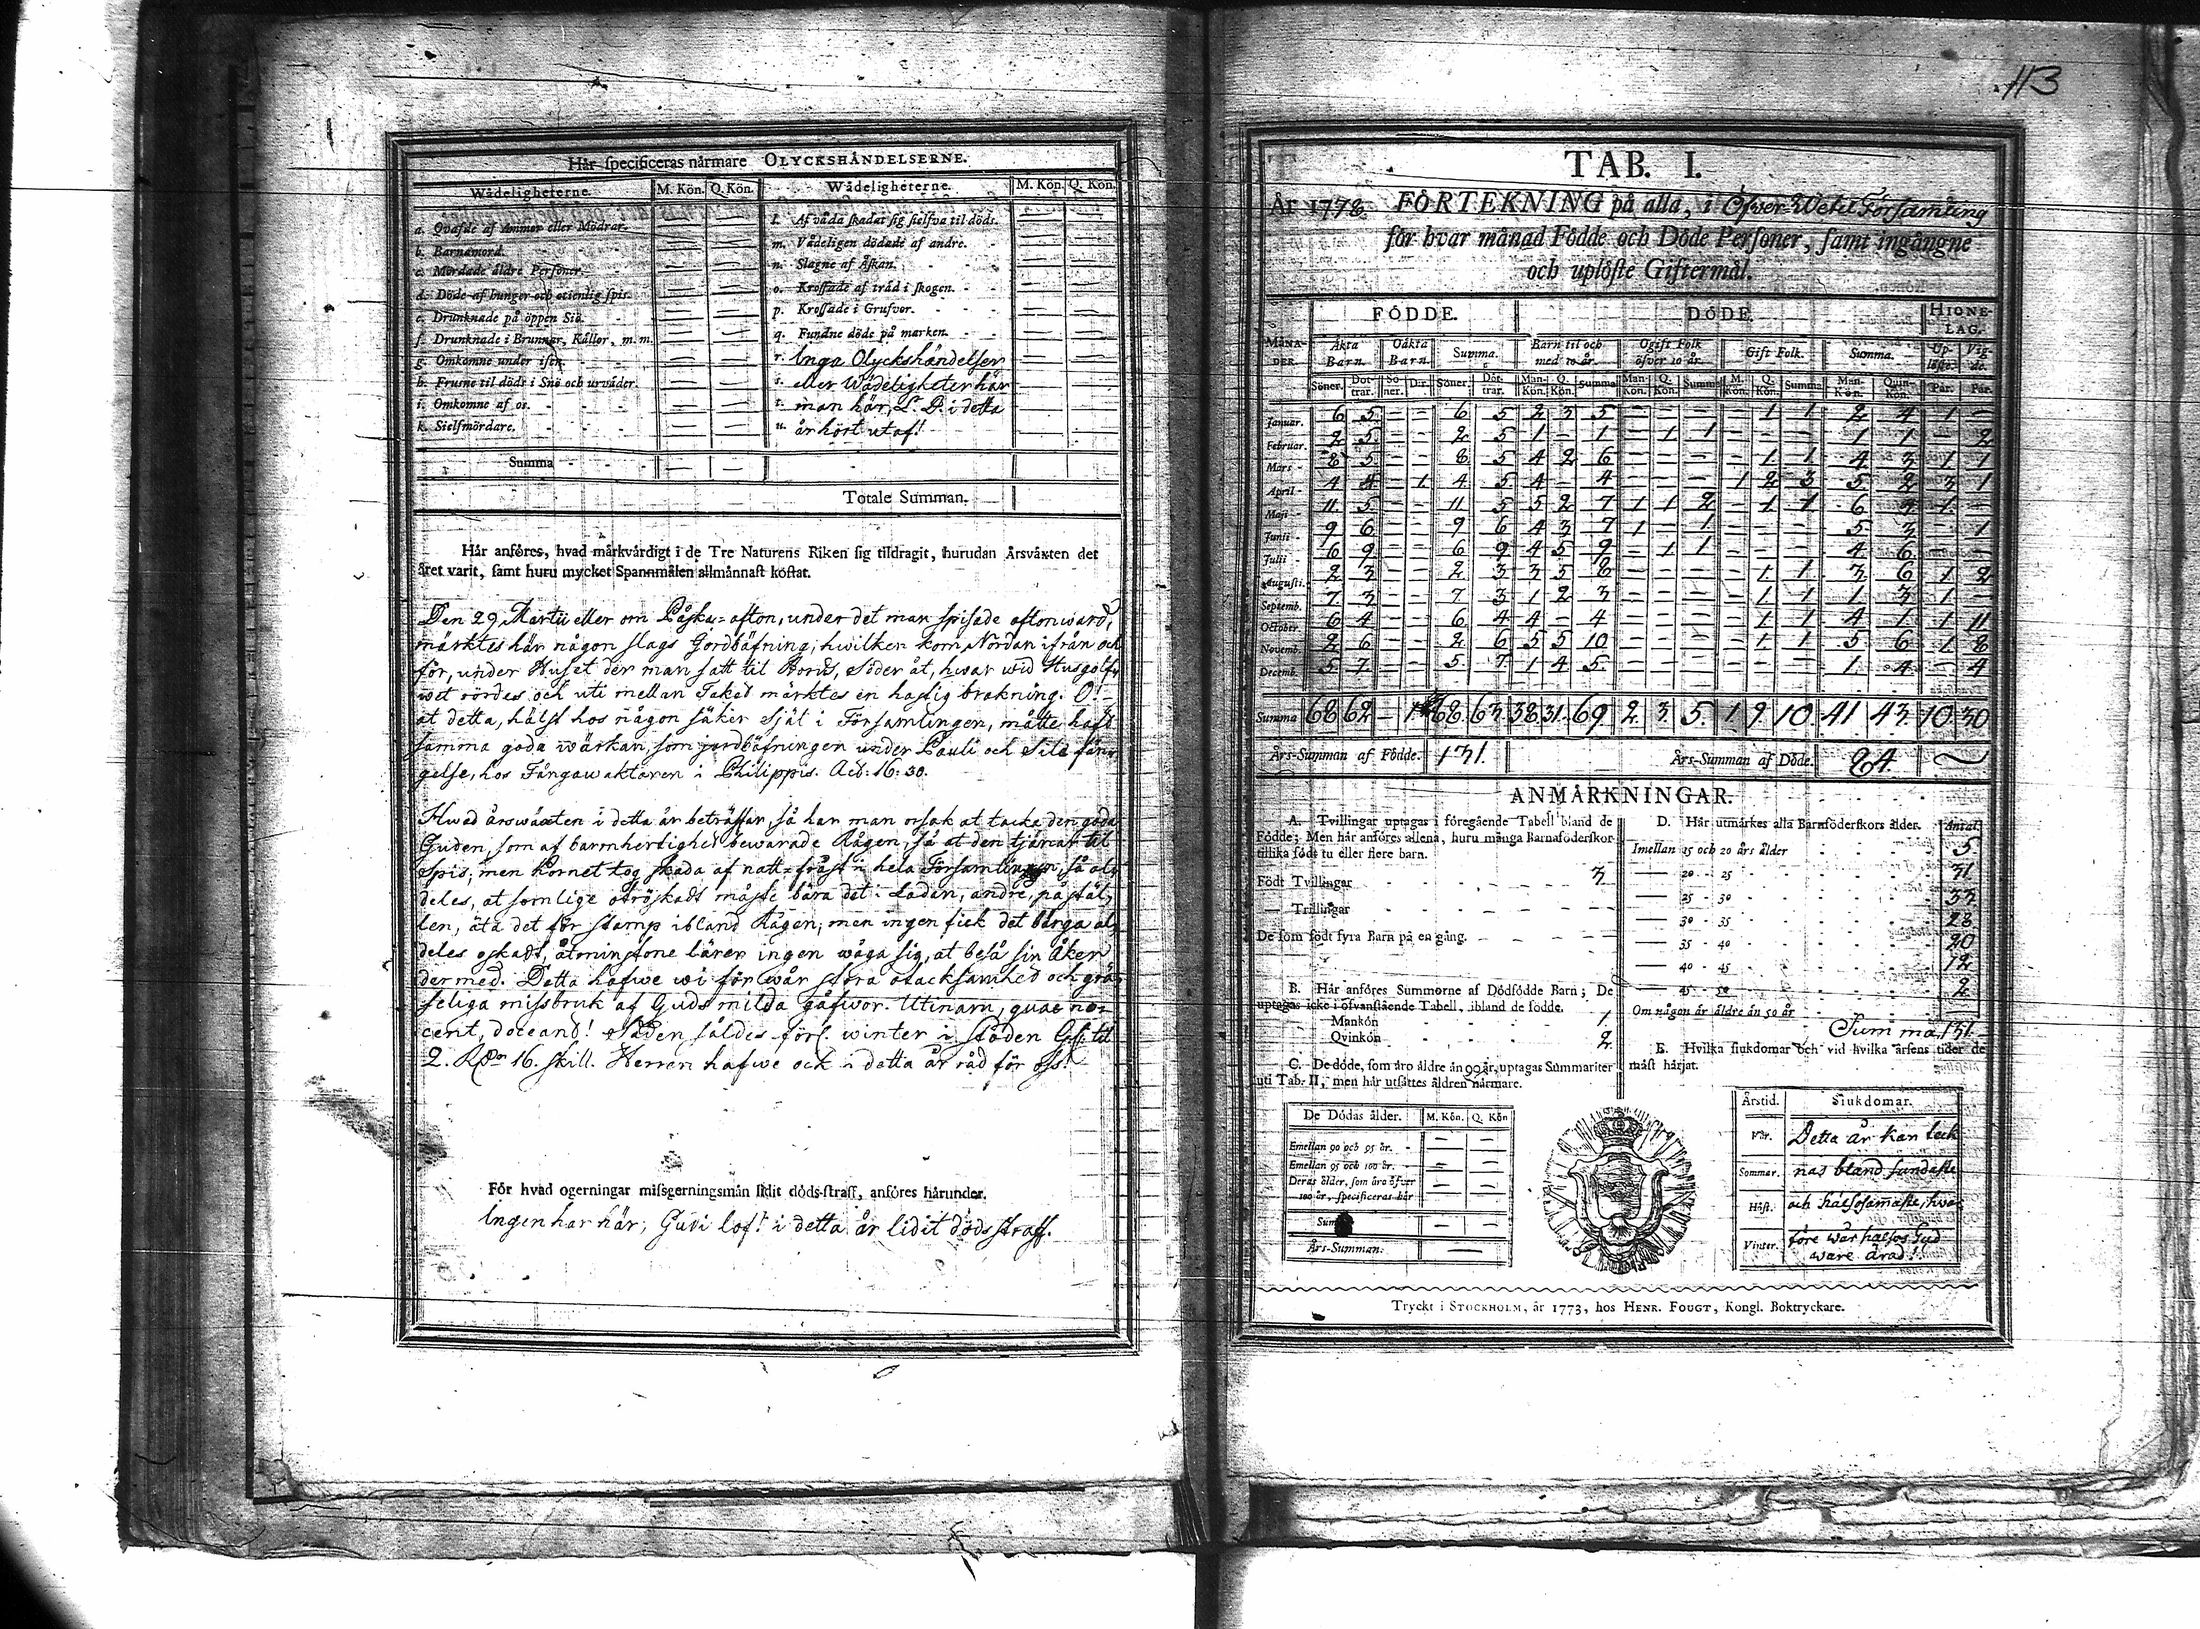 Här specificeras närmare OLYCKSHÄNDELSERNE.
Wådeligheterne. M. Kön. Q. Kön. Wådeligheterne. M. Kön. Q. Kön.
a. Qvafde af Ammor eller Mödrar. — — l. Af våda skadat sig sielfva til döds. — —
b. Barnamord. — — m. Vådeligen dödade af andre. — —
c. Mördade äldre Personer. — — n. Slagne af Åskan. — —
d. Döde af hunger och otienlig spis. — — o. Krossade af träd i skogen. — —
e. Drunknade på öppen Siö. — — p. Krossade i Grufvor. — —
f. Drunknade i Brunnar, Källor, m.m. — — q. Fundne döde på marken. — —
g. Omkomne under isen. — — r. Inga Olyckshändelser — —
h. Frusne til döds i Snö och urväder. — — s. eller Wådeligheter här — —
i. Omkomne af os. — — t. man här, L. D. i detta — —
k. Sielfmördare. — — u. år hört utaf! — —
Summa — —
Totale Summan.
Här anföres, hvad märkvärdigt i de Tre Naturens Riken sig tildragit, hurudan Årsväxten det
året varit, samt huru mycket Spannmålen allmännast kostat.
Den 29 Martii eller om Påska-afton, under det man spisade aftonward,
märktes här någon slags Jordbäfning, hwilken kom Nordan ifrån och
för, under Huset der man satt til Bords, Söder åt, hwar wid Husgolf-
wet rördes och uti mellan Taket märktes en hastig brakning. O!
at detta, hälst hos någon säker Själ i Församlingen, måtte haft
samma goda wärkan, som jordbäfningen under Pauli och Silæ fän-
gelse, hos Fångawaktaren i Philippis. Act. 16:30.
Hwad årswäxten i detta år beträffar, så har man orsak at tacka den goda
Guden, som af barmhertighet bewarade Rågen, så at den tjänar til
Spis; men Kornet tog skada af natt-fråst i hela Församlingen, så al-
deles, at somlige otröskadt måste bära det i Ladan, andre, på stäl-
len, äta det för stamp ibland Rågen; men ingen fick det bärga al-
deles oskadt, åtminstone lärer ingen wåga sig, at beså sin Åker
dermed. Detta hafwe wi för wår stora otacksamhed och grä-
seliga missbruk af Guds milda gåfwor. Utinam, quae no-
cent, doceant! Säden såldes förl. winter i Städen
2. Rdr 16. skill. Herren hafwe ock i detta år råd för oss!
För hvad ogerningar missgerningsmän lidit döds-straff, anföres härunder.
Ingen har här, Gudi lof! i detta år lidit dödsstraff.
113
TAB. I.
År 1778. FÖRTEKNING på alla, i Öfwer-Wetil Församling
för hvar månad Födde och Döde Personer, samt ingångne
och uplöste Giftermål.
FÖDDE. DÖDE. HIONE-LAG.
MÅNADER. Äkta Barn. Oäkta Barn. Summa. Barn til och med 10 år. Ogift Folk öfver 10 år. Gift Folk. Summa. Uplöste. Vigde.
Söner. Dottrar. Söner. D:r. Söner. Döttrar. Man-Kön. Q. Kön. Summa Man-Kön. Q. Kön. Summa M. Kön. Q. Kön. Summa Man-Kön. Quin-Kön. Par. Par.
Januar. 6 5 — — 6 5 2 3 5 — — — — 1 1 2 4 1 —
Februar. 2 5 — — 2 5 1 — 1 — 1 1 — — — 1 1 — 2
Mars 8 5 — — 8 5 4 2 6 — — — — 1 1 4 3 1 1
April 4 4 — 1 4 5 4 — 4 — — — 1 2 3 5 2 3 1
Maji 11 5 — — 11 5 5 2 7 1 1 2 — 1 1 6 4 1 —
Junii 9 6 — — 9 6 4 3 7 1 — 1 — — — 5 3 — 1
Julii 6 9 — — 6 9 4 5 9 — 1 1 — — — 4 6 — —
Augusti. 2 3 — — 2 3 3 5 8 — — — — 1 1 3 6 1 2
Septemb. 7 3 — — 7 3 1 2 3 — — — — 1 1 1 3 1 —
October. 6 4 — — 6 4 4 — 4 — — — — 1 1 4 1 1 11
Novemb. 2 6 — — 2 6 5 5 10 — — — — 1 1 5 6 1 8
Decemb. 5 7 — — 5 7 1 4 5 — — — — — — 1 4 — 4
Summa 68 62 — 1 68 63 38 31 69 2 3 5 1 9 10 41 43 10 30
Års-Summan af Födde. 131. Års-Summan af Döde. 84.
ANMÄRKNINGAR.
A. Tvillingar uptagas i föregående Tabell bland de
Födde; Men här anföres allena, huru många Barnaföderskor
tillika födt tu eller flere barn.
Födt Tvillingar 3
— Trillingar —
De som födt fyra Barn på en gång. —
B. Här anföres Summorne af Dödfödde Barn; De
uptagas icke i ofvanstående Tabell, ibland de födde.
Mankön 1
Qvinkön 2
C. De döde, som äro äldre än 90 år, uptagas Summariter
uti Tab. II, men här utsättes åldren närmare.
De Dödas ålder. M. Kön. Q. Kön
Emellan 90 och 95 år. — —
Emellan 95 och 100 år. — —
Deras ålder, som äro öfver
100 år, specificeras här — —
Summa — —
Års-Summan. —
D. Här utmärkes alla Barnföderskors ålder. Antal
Imellan 15 och 20 års ålder 5
— 20 - 25 31
— 25 - 30 33
— 30 - 35 28
— 35 - 40 20
— 40 - 45 12
— 45 - 50 2
Om någon är äldre än 50 år —
Summa, 131.
E. Hvilka siukdomar och vid hvilka årsens tider de
mäst härjat.
Årstid. Siukdomar.
Vår. Detta år kan teck
Sommar. nas bland sundaste
Höst. och hälsosamaste, hwar
Vinter. före wår hälsos Gud
ware ärad!
Tryckt i STOCKHOLM, år 1773, hos HENR. FOUGT, Kongl. Boktryckare.